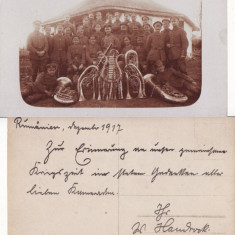 Rumänien, dezember 1917
Zur Erinnerung an unser gemeinsame
Kriegszeit in steten Gedenken aller
lieben Kameraden.
Ihr
W. Handrock.